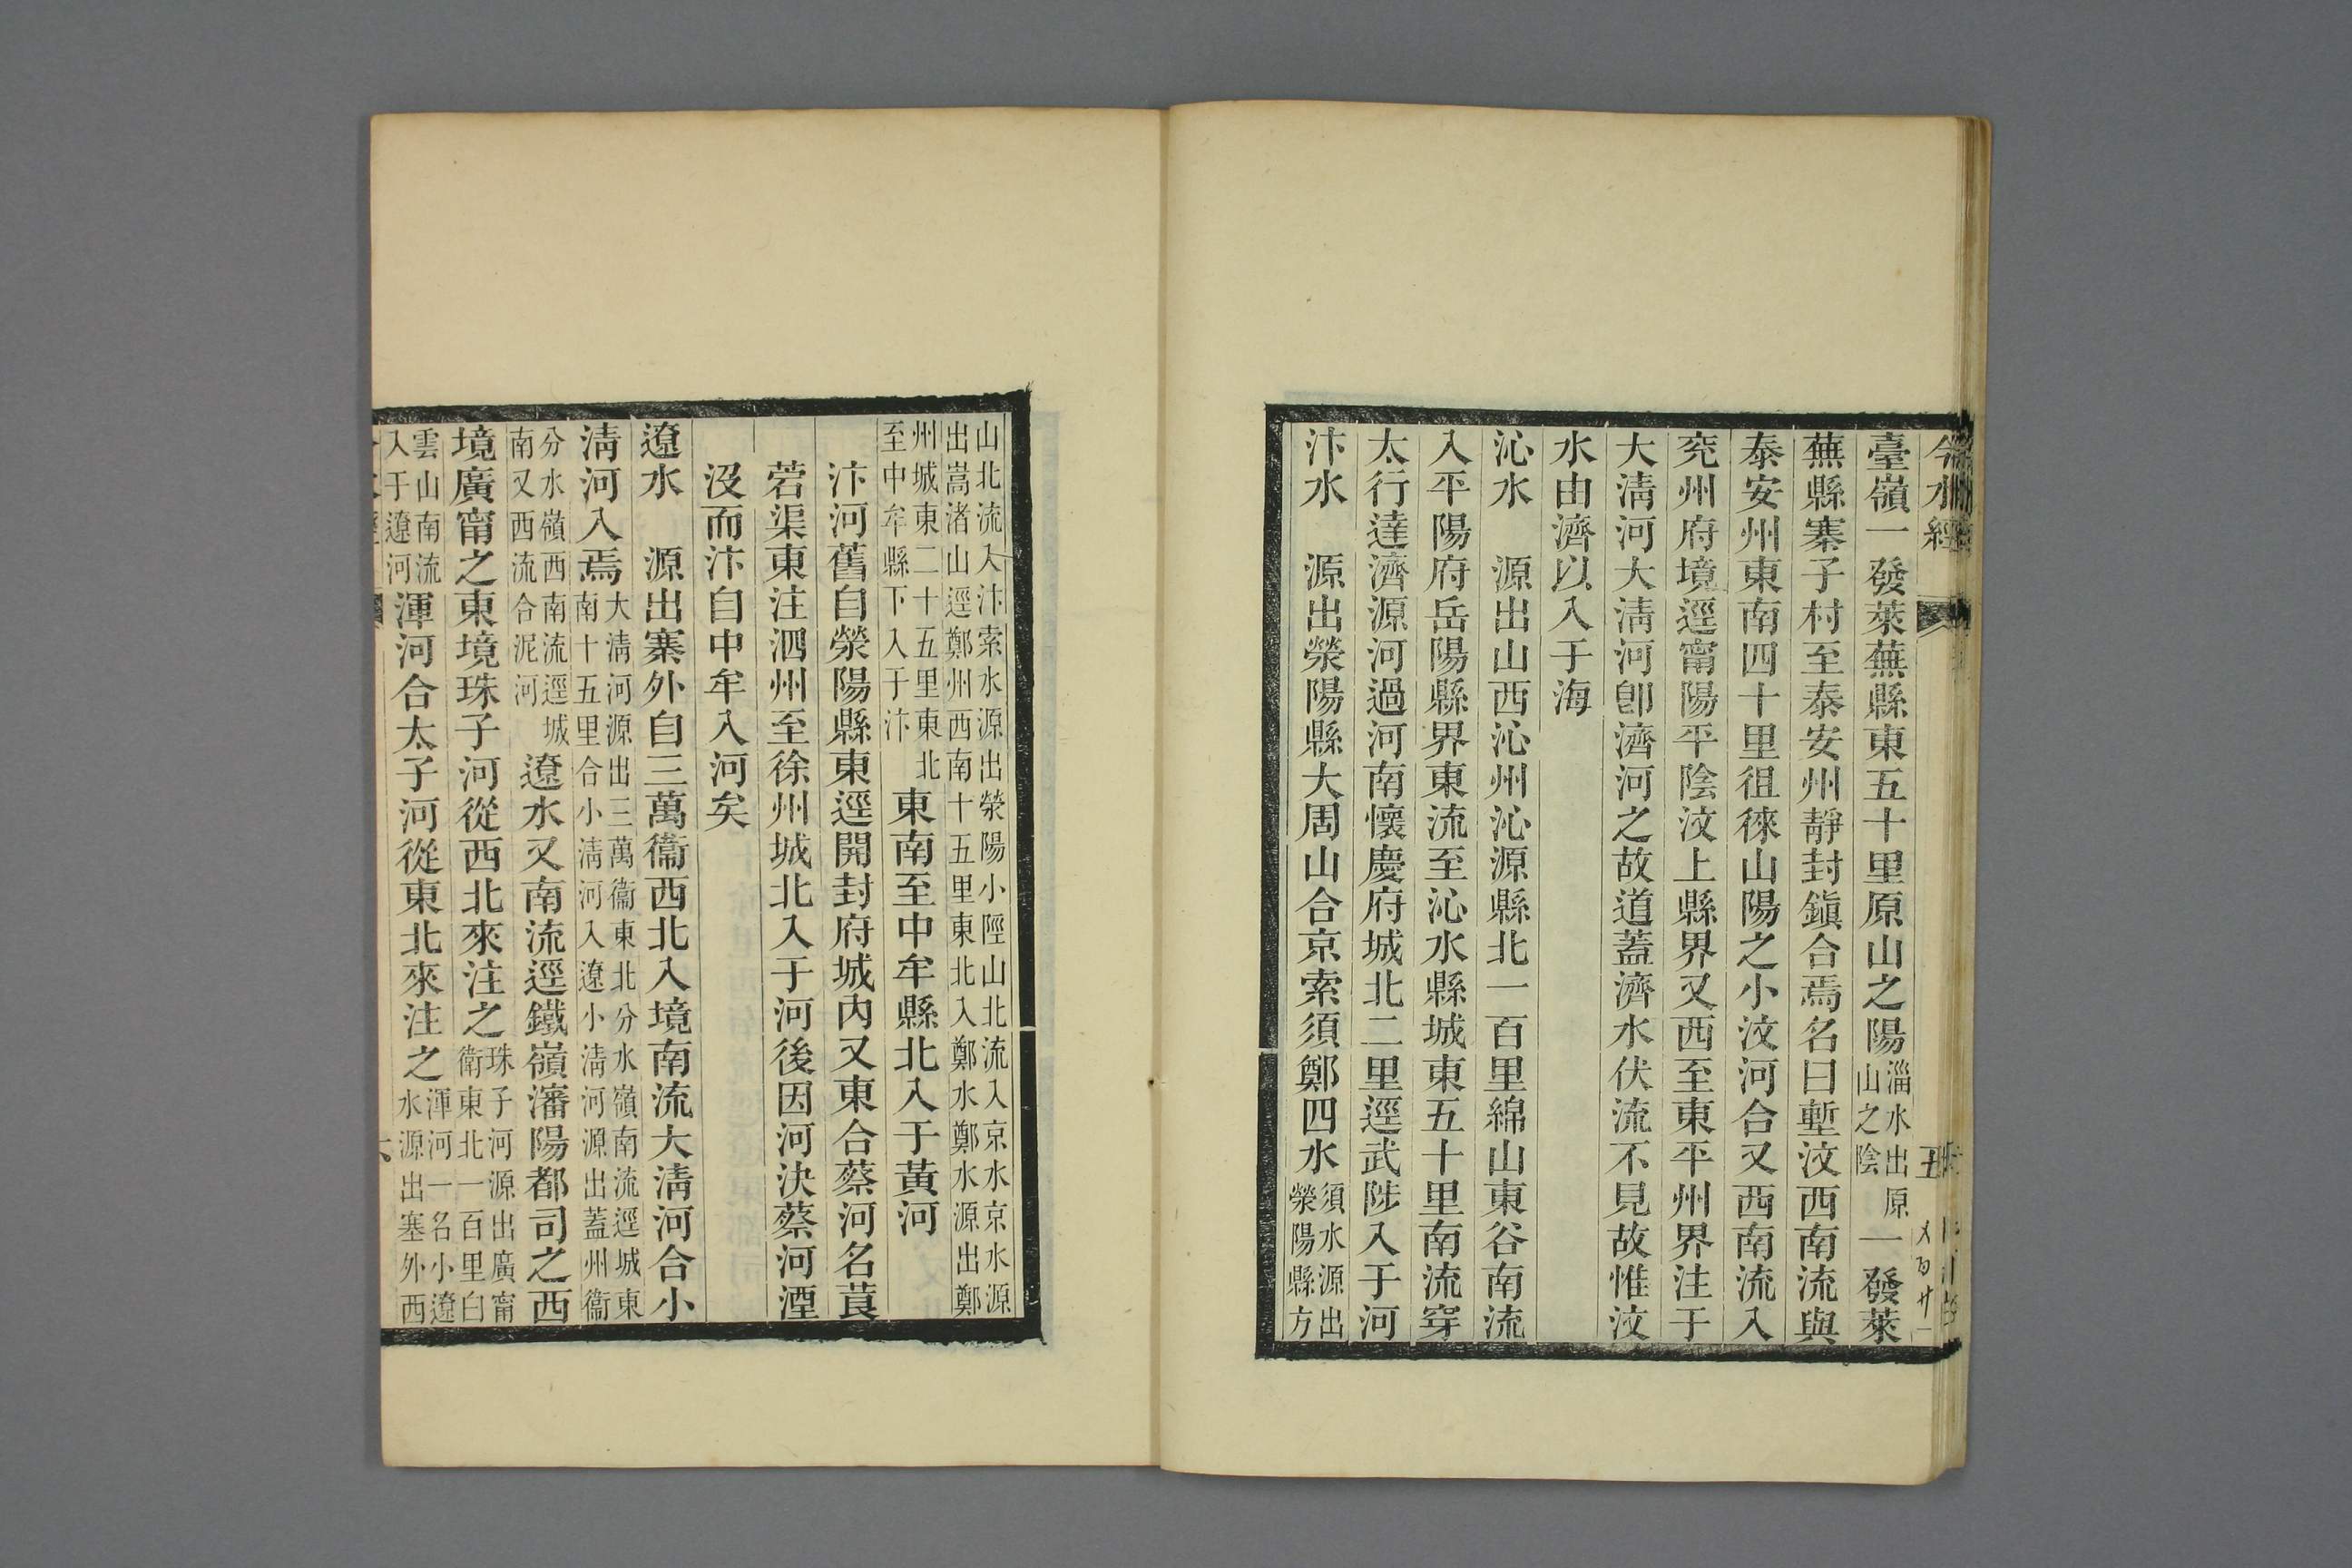 今水經
五
臺嶺一發萊蕪縣東五十里原山之陽淄水出原山之陰一發萊
蕪縣寨子村至泰安州靜封鎭合焉名曰塹汶西南流與
泰安州東南四十里徂徠山陽之小汶河合又西南流入
兖州府境逕甯陽平陰汶上縣界又西至東平州界注于
大淸河大淸河卽濟河之故道蓋濟水伏流不見故惟汶
水由濟以入于海
沁水　源出山西沁州沁源縣北一百里綿山東谷南流
入平陽府岳陽縣界東流至沁水縣城東五十里南流穿
太行達濟源河過河南懷慶府城北二里逕武陟入于河
汴水　源出滎陽縣大周山合京索須鄭四水須水源出滎陽縣方
山北流入汴索水源出滎陽小陘山北流入京水京水源出嵩渚山逕鄭州西南十五里東北入鄭水鄭水源出鄭
州城東二十五里東北至中牟縣下入于汴東南至中牟縣北入于黃河
汴河舊自滎陽縣東逕開封府城內又東合蔡河名莨
菪渠東注泗州至徐州城北入于河後因河決蔡河湮
沒而汴自中牟入河矣
遼水　源出寨外自三萬衞西北入境南流大淸河合小
淸河入焉大淸河源出三萬衞東北分水嶺南流逕城東南十五里合小淸河入遼小淸河源出蓋州衞
分水嶺西南流逕城南又西流合泥河遼水又南流逕鐵嶺瀋陽都司之西
境廣甯之東境珠子河從西北來注之珠子河源出廣甯衞東北一百里白
雲山南流入于遼河渾河合太子河從東北來注之渾河一名小遼水源出塞外西
六